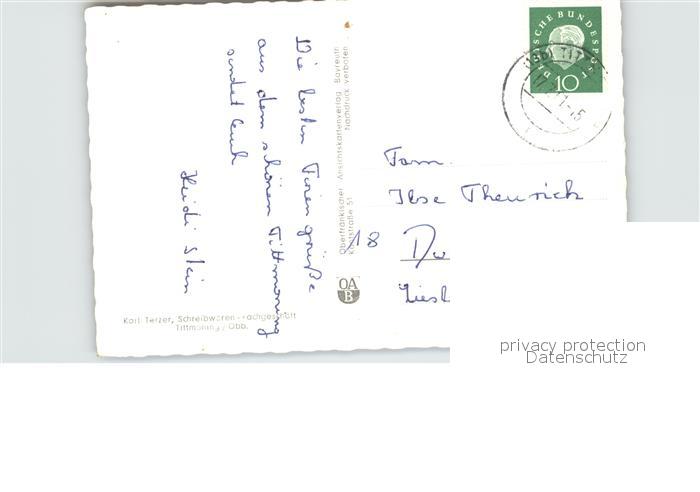 Die besten Feriengrüße
aus dem schönen Tittmoning
sendet Euch
Heidi Stein
Karl Terzer, Schreibwaren-Fachgeschäft
Tittmoning / Obb.
Oberfränkischer Ansichtskartenverlag Bayreuth
Karlstraße 51 Nachdruck verboten
OA
B
DEUTSCHE BUNDESPOST
10
Fam.
Ilse Theurich
18 Du
Liesl
privacy protection
Datenschutz